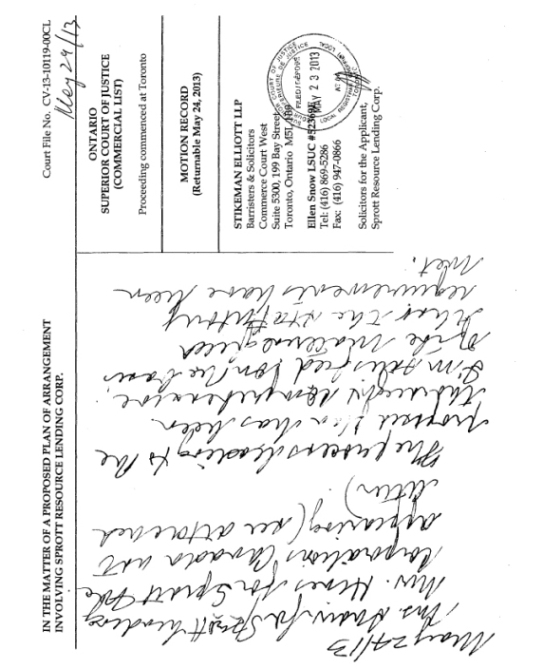 Court File No. CV-13-10119-00CL
May 24/13
IN THE MATTER OF A PROPOSED PLAN OF ARRANGEMENT
INVOLVING SPROTT RESOURCE LENDING CORP.
ONTARIO
SUPERIOR COURT OF JUSTICE
(COMMERCIAL LIST)
Proceeding commenced at Toronto
MOTION RECORD
(Returnable May 24, 2013)
STIKEMAN ELLIOTT LLP
Barristers & Solicitors
Commerce Court West
Suite 5300, 199 Bay Street
Toronto, Ontario M5L 1B9
Ellen Snow LSUC #
Tel: (416) 869-5286
Fax: (416) 947-0866
Solicitors for the Applicant,
Sprott Resource Lending Corp.
MAY 23 2013
May 24/13
Ms. for Sprott Lending
Mr. Hines for Sprott Inc
Corporations Canada not
appearing (see attached
letter)
The process leading to the
proposed Plan has been
thorough & comprehensive.
I'm satisfied on the basis
of the material filed
that the statutory
requirements have been
met.